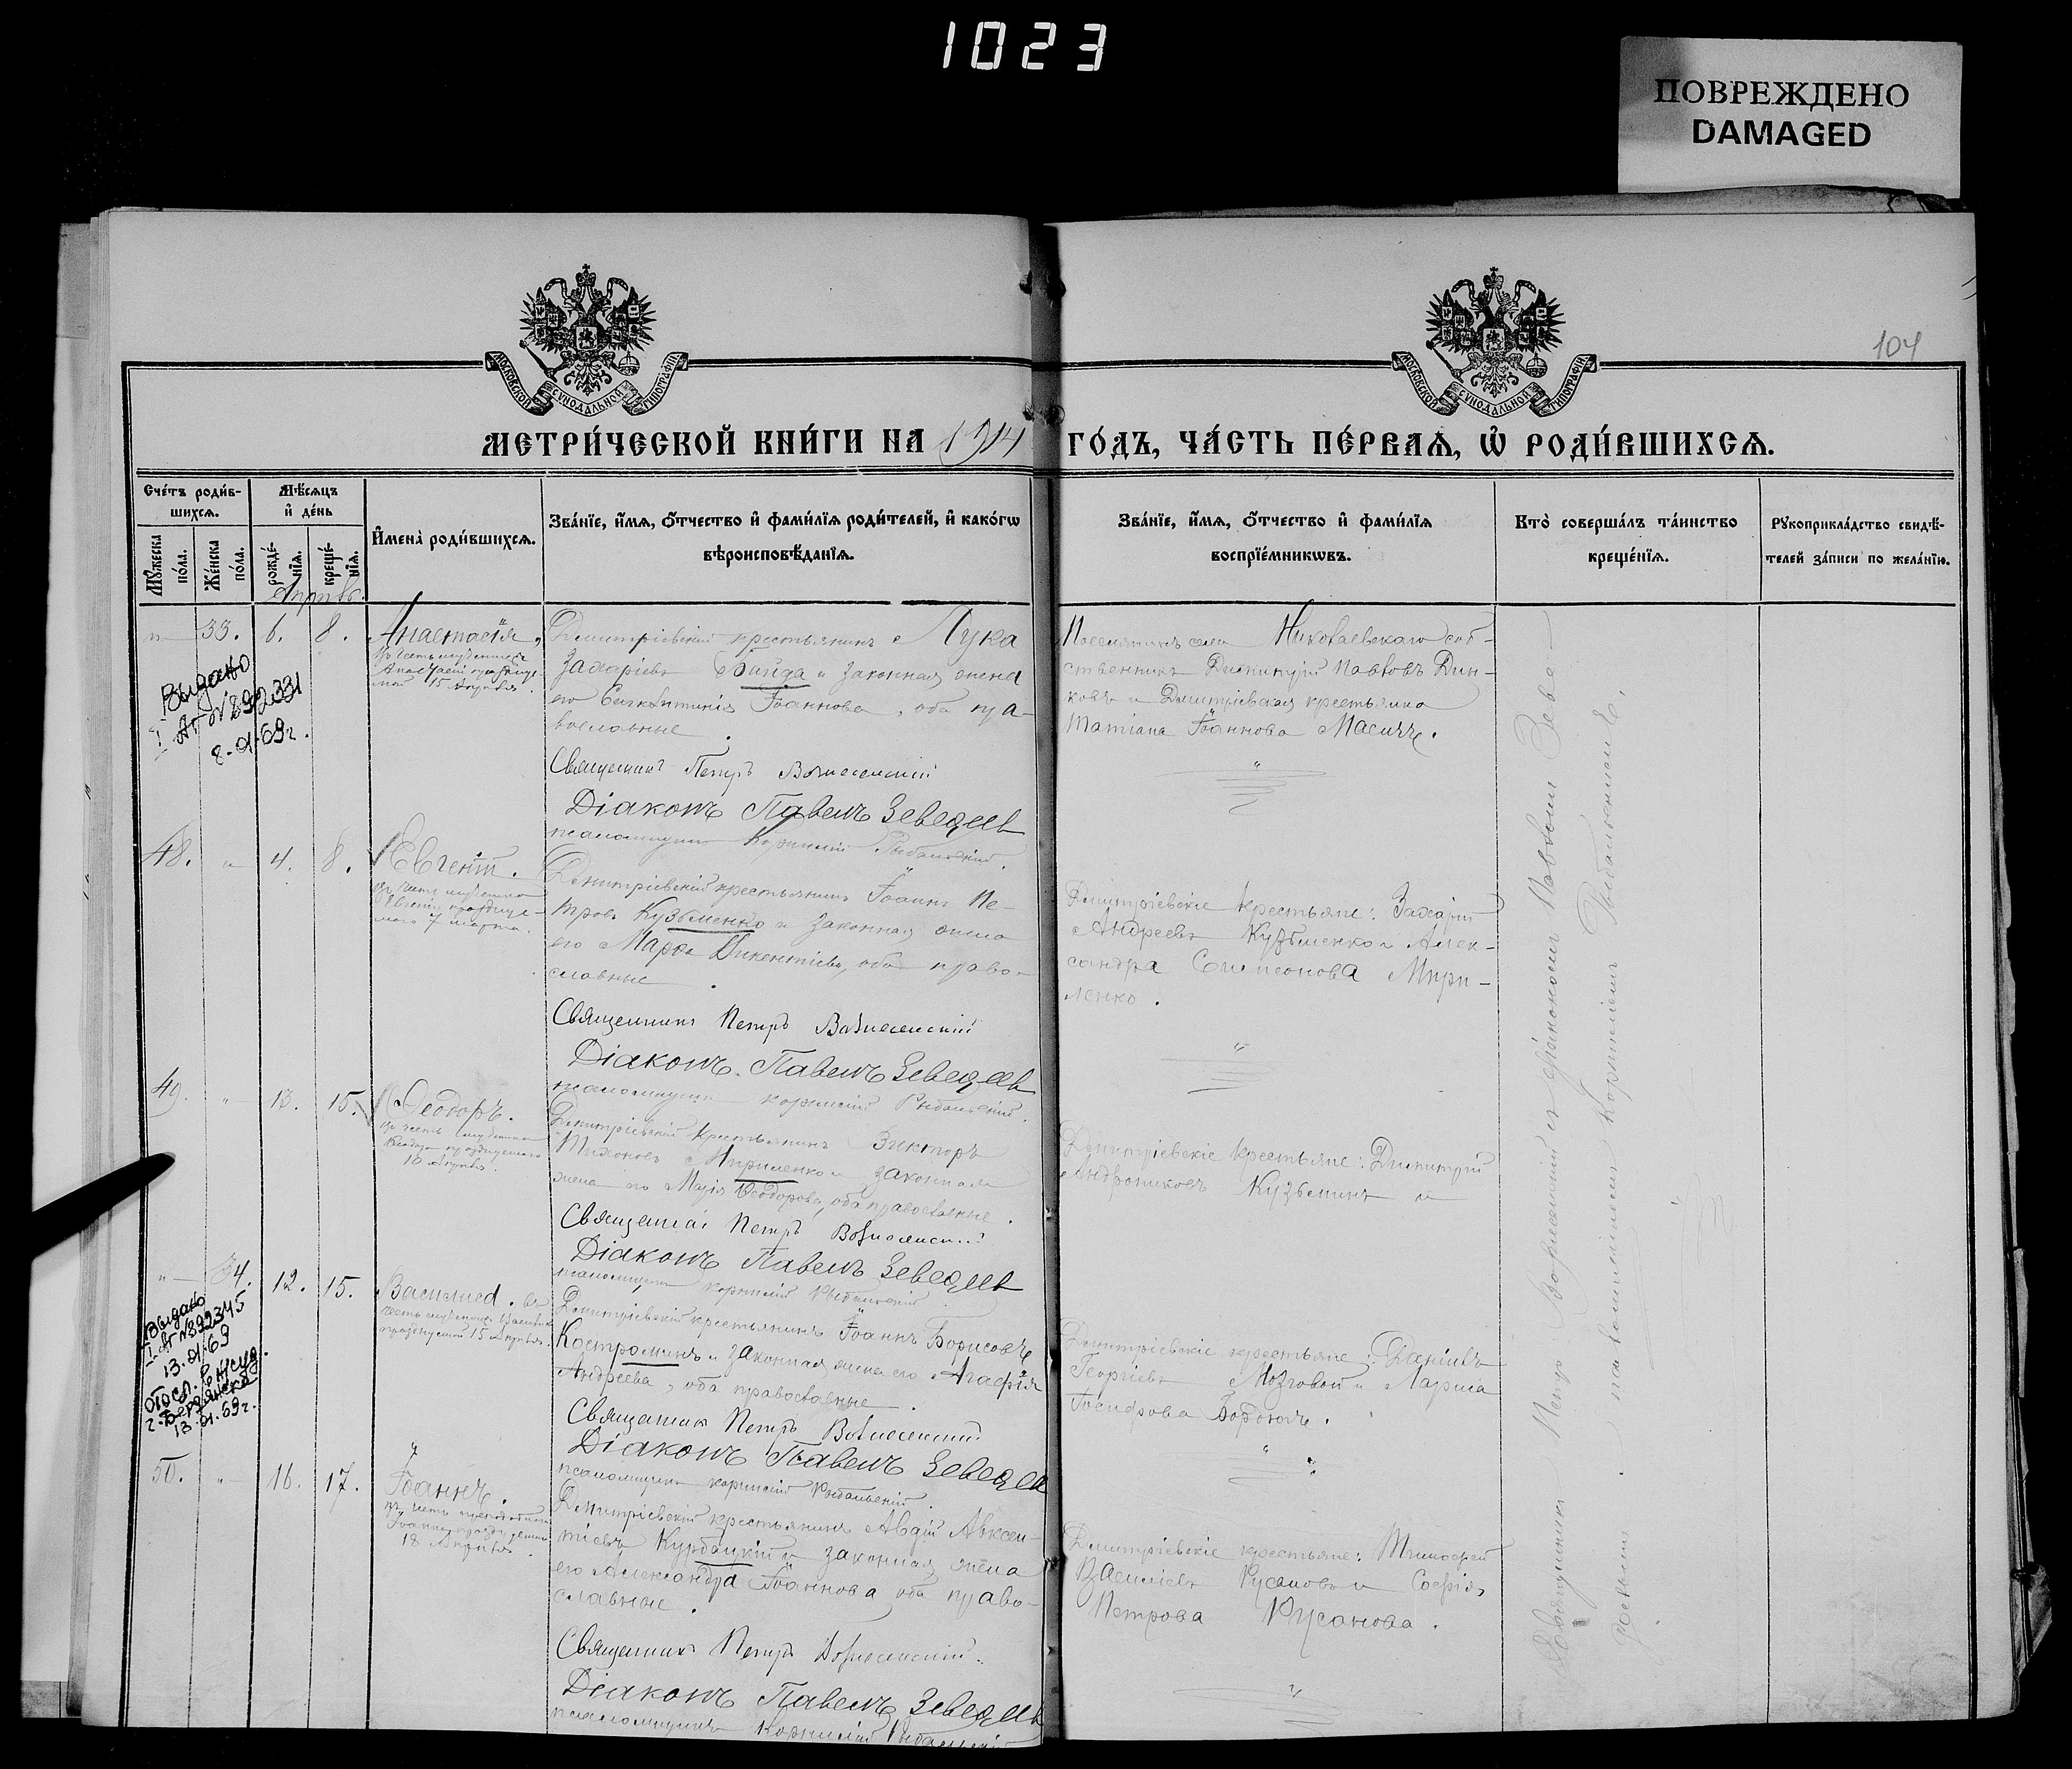 1023
ПОВРЕЖДЕНО
DAMAGED
104
МОСКОВСКОЙ СѴНОДАЛЬНОЙ ТИПОГРАФІИ
МОСКОВСКОЙ СѴНОДАЛЬНОЙ ТИПОГРАФІИ
МЕТРИ́ЧЕСКОЙ КНИ́ГИ НА 1914 ГО́ДЪ, ЧА́СТЬ ПЕ́РВАѦ, Ѡ҆ РОДИ́ВШИХСѦ.
Сче́тъ роди́в-
шихсѧ.
Мѣ́сѧцъ
и҆ де́нь
И҆мена̀ роди́вшихсѧ.
Зва́нїе, и҆́мѧ, ѻ҆́тчество и҆ фами́лїѧ роди́телей, и҆ како́гѡ
вѣроисповѣ́данїѧ.
Мꙋ́жеска
по́ла.
Же́нска
по́ла.
рожде́-
нїѧ.
креще́-
нїѧ.
Апрѣль.
Зва́нїе, и҆́мѧ, ѻ҆́тчество и҆ фами́лїѧ
воспрїе́мникѡвъ.
Кто̀ соверша́лъ та́инство
креще́нїѧ.
Рꙋкоприкла́дство свидѣ́-
телей за́писи по жела́нїю.
33. 6. 8. Анастасія,
въ честь мученицы
Анастасіи празднуе-
мой 15 Апрѣля.
Выдано
I-АГ №892331
8.01.69г.
Димитріевскій крестьянинъ Лука
Захаріевъ Байда и законная жена
его Евгкитинія Іоаннова, оба пра-
вославные.
Священникъ Петръ Вознесенскій
Діаконъ Павелъ Зеведеев
псаломщикъ Корнилій Рыбальскій.
Поселянинъ села Николаевскаго соб-
ственникъ Димитрій Павловъ Дин-
ковъ и Димитріевская крестьянка
Татіана Іоаннова Масичъ.
48. 4. 8. Евгеній.
въ честь мученика
Евгенія празднуе-
маго 7 марта.
Димитріевскій крестьянинъ Іоаннъ Пе-
тровъ Кузьменко и законная жена
его Марѳа Викентіева, оба право-
славные.
Священникъ Петръ Вознесенскій
Діаконъ Павелъ Зеведеев
псаломщикъ Корнилій Рыбальскій.
Димитріевскіе крестьяне: Захарій
Андреевъ Кузьменко и Алек-
сандра Симеонова Мири-
ленко.
49. 13. 15. Ѳеодоръ.
въ честь мученика
Ѳеодора празднуемаго
16 Апрѣля.
Димитріевскій крестьянинъ Викторъ
Тихоновъ Мириленко и законная
жена его Марія Ѳеодорова, оба православные.
Священникъ Петръ Вознесенскій
Діаконъ Павелъ Зеведеев
псаломщикъ Корнилій Рыбальскій
Димитріевскіе крестьяне: Димитрій
Андрониковъ Кузьминъ и
34. 12. 15. Василиса. въ
честь мученицы Василисы
празднуемой 15 Апрѣля.
Выдано
I-АГ №892345
13.01.69
отосл.
г. Бердянска
13.01.69г.
Димитріевскій крестьянинъ Іоаннъ Борисовъ
Костроминъ и законная жена его Агафія
Андреева, оба православные.
Священник Петръ Вознесенскій
Діаконъ Павелъ Зеведеев
псаломщикъ Корнилій Рыбальскій.
Димитріевскіе крестьяне: Даніилъ
Георгіевъ Мозговой и Лариса
Іосифова
50. 16. 17. Іоаннъ.
въ честь преподобнаго
Іоанна празднуемаго
18 Апрѣля.
Димитріевскій крестьянинъ Авдій Авксен-
тіевъ Курбацкій и законная жена
его Александра Іоаннова оба право-
славные.
Священникъ Петръ Вознесенскій.
Діаконъ Павелъ Зеведеев
псаломщикъ Корнилій Рыбальскій
Димитріевскіе крестьяне: Тимоѳей
Василіевъ Русановъ и Софія
Петрова Русанова.
Священникъ Петръ Вознесенскій съ діакономъ Павломъ Зеве-
деевымъ и псаломщикомъ Корниліемъ Рыбальскимъ.